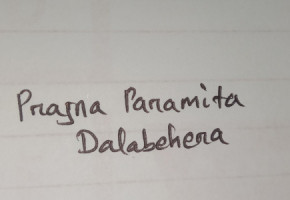 Pragna Paramita
Dalabehera